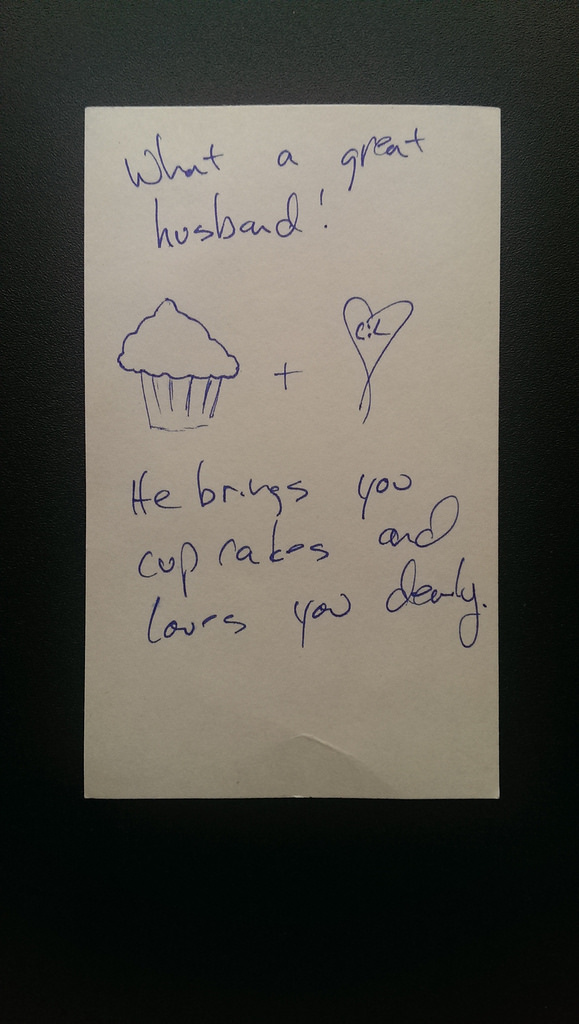 What a great
husband!
+ C:L
He brings you
cupcakes and
loves you dearly.